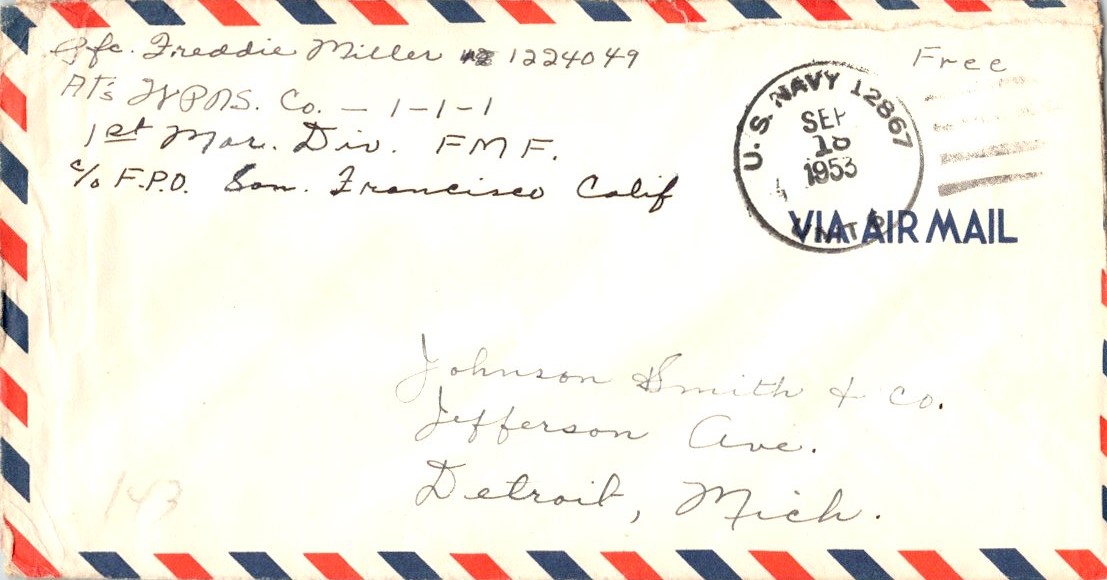 Pfc. Freddie Miller 1224049
AT's WPNS. Co. - 1-1-1
1st Mar. Div. F M F.
c/o F.P.O. San. Francisco Calif
Free
U.S. NAVY 12867
SEP
18
1953
VIA AIR MAIL
Johnson Smith & Co.
Jefferson Ave.
Detroit, Mich.
143